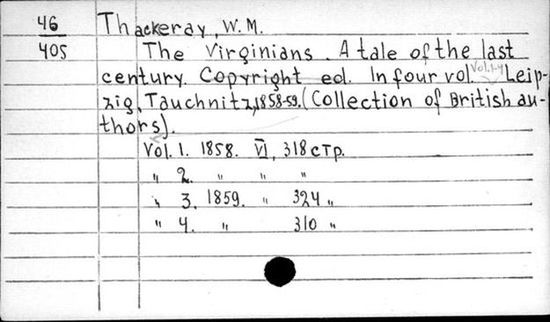 46 Thackeray, W. M.
405 The Virginians. A tale of the last
century. Copyright ed. In four vol. Vol.1-4 Leip-
zig, Tauchnitz, 1858-59. (Collection of British au-
thors).
Vol. 1. 1858. VI, 318 стр.
" 2. " " "
" 3. 1859. " 324 "
" 4. " 310 "